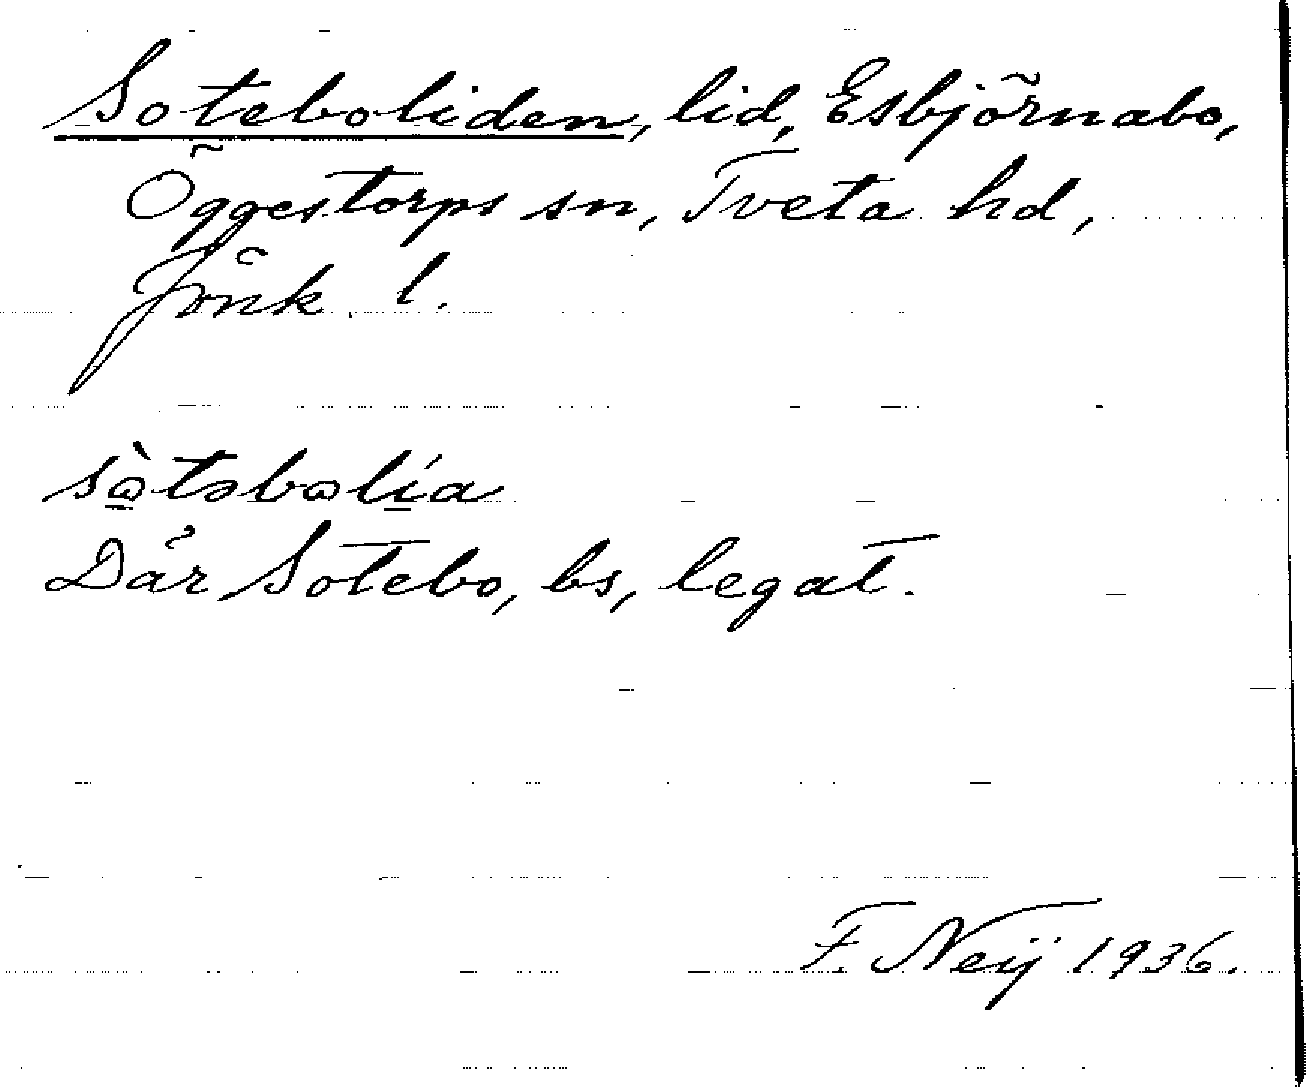 Soteboliden, lid, Esbjörnabo,
Öggestorps sn, Tveta hd,
Jönk. l.
sὼ̱təbωlí̱a
Där Sotebo, bs, legat.
F. Neij 1936.